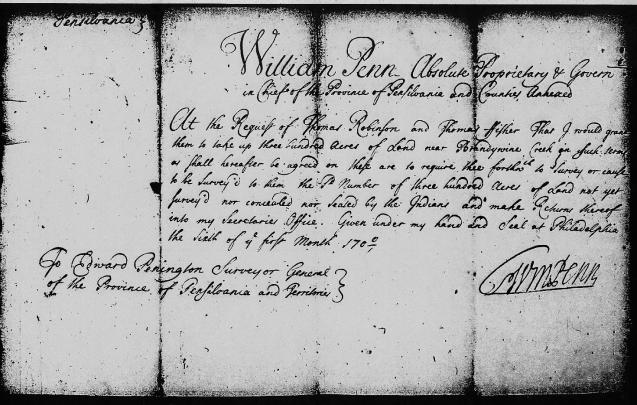 Pensilvania }
William Penn Absolute Proprietary & Govern
in Chief of the Province of Pensilvania and Counties Annexed
At the Request of Thomas Robinson and Thomas ffisher That I would grant
them to take up three hundred Acres of Land near Brandywine Creek on such terms
as shall hereafter be agreed on these are to require thee forthwth to Survey or cause
to be Survey'd to them the sd Number of three hundred Acres of Land not yet
Survey'd nor concealed nor Seated by the Indians and make Returns thereof
into my Secretaries Office. Given under my hand and Seal at Philadelphia
the Sixth of ye first Month 170
To Edward Penington Surveyor General
of the Province of Pensilvania and Territories }
Wm Penn